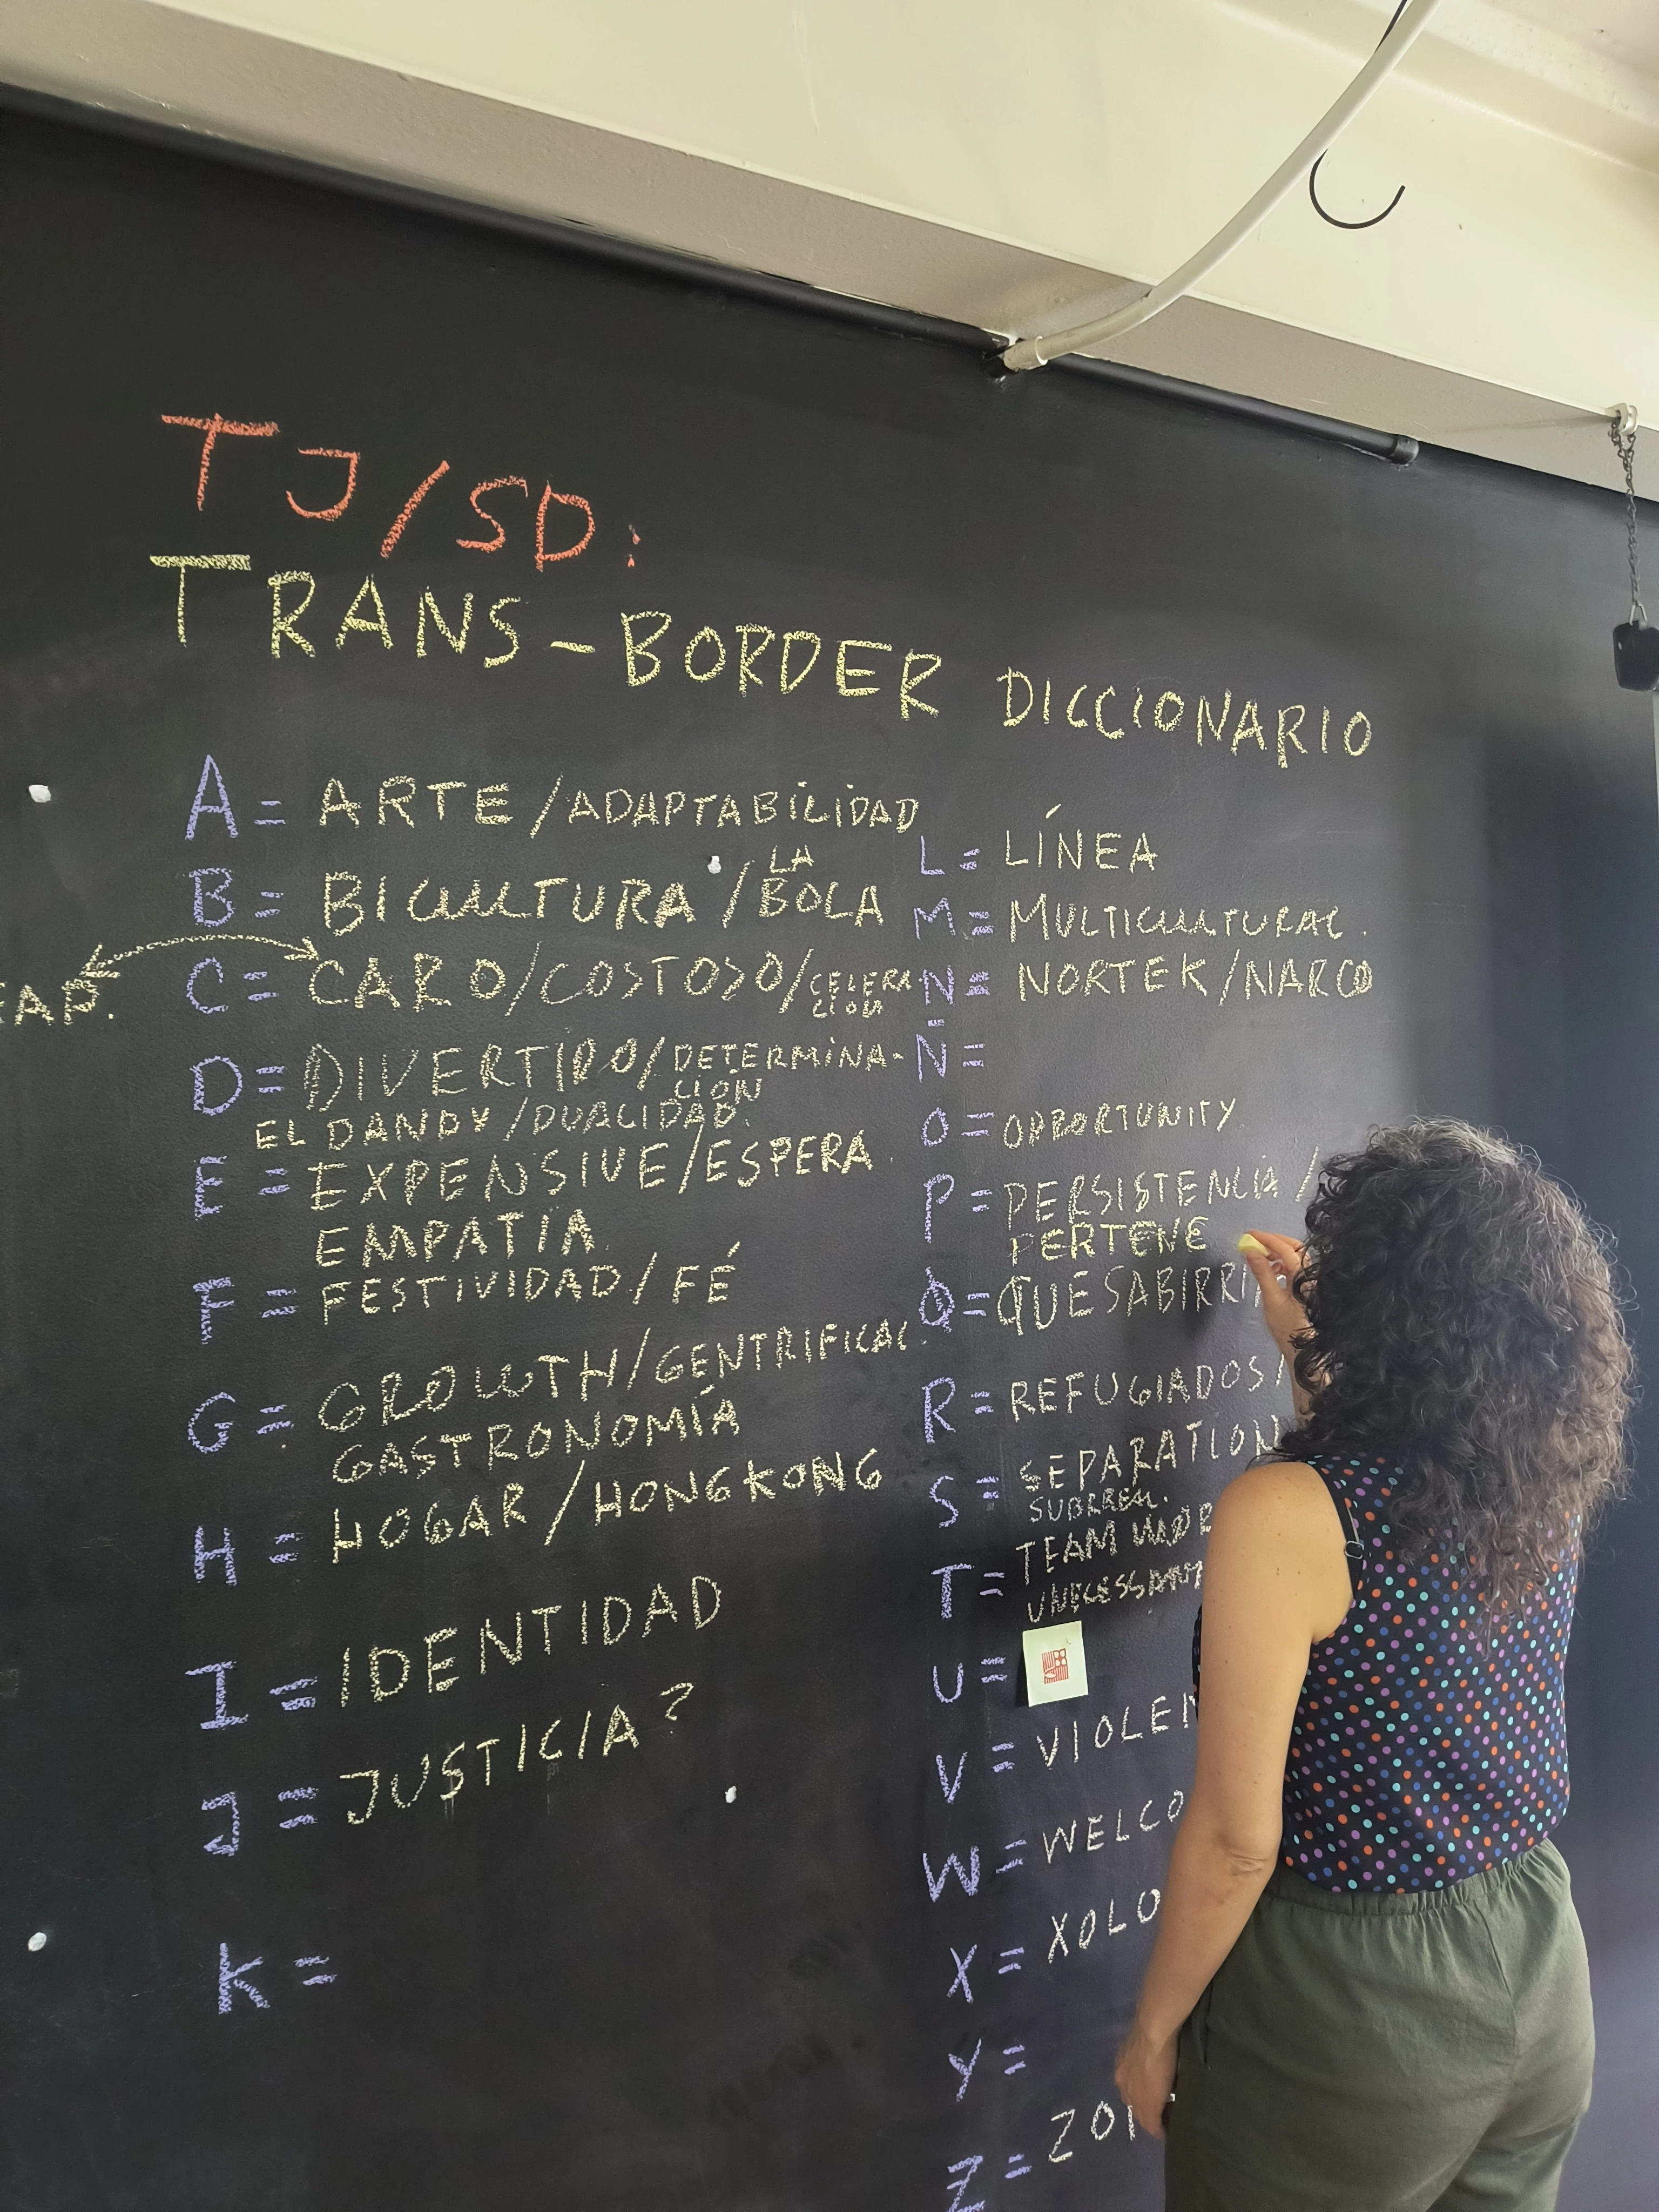 TJ/SD:
TRANS-BORDER DICCIONARIO
A = ARTE/ADAPTABILIDAD
B = BICULTURA/LA BOLA
EAP.
C = CARO/COSTOSO/CELERA
CION
D = DIVERTIDO/DETERMINA-
CIÓN
EL DANDY/DUALIDAD.
E = EXPENSIVE/ESPERA
EMPATÍA
F = FESTIVIDAD/FÉ
G = GROWTH/GENTRIFICAC.
GASTRONOMÍA
H = HOGAR/HONGKONG
I = IDENTIDAD
J = JUSTICIA?
K =
L = LÍNEA
M = MULTICULTURAL.
N = NORTEK/NARCO
Ñ =
O = OPPORTUNITY
P = PERSISTENCIA/
PERTENE
Q = QUESABIRRI
R = REFUGIADOS/
S = SEPARATION
SURREAL.
T = TEAM
U =
V = VIOLEN
W = WELCO
X = XOLO
Y =
Z = ZON